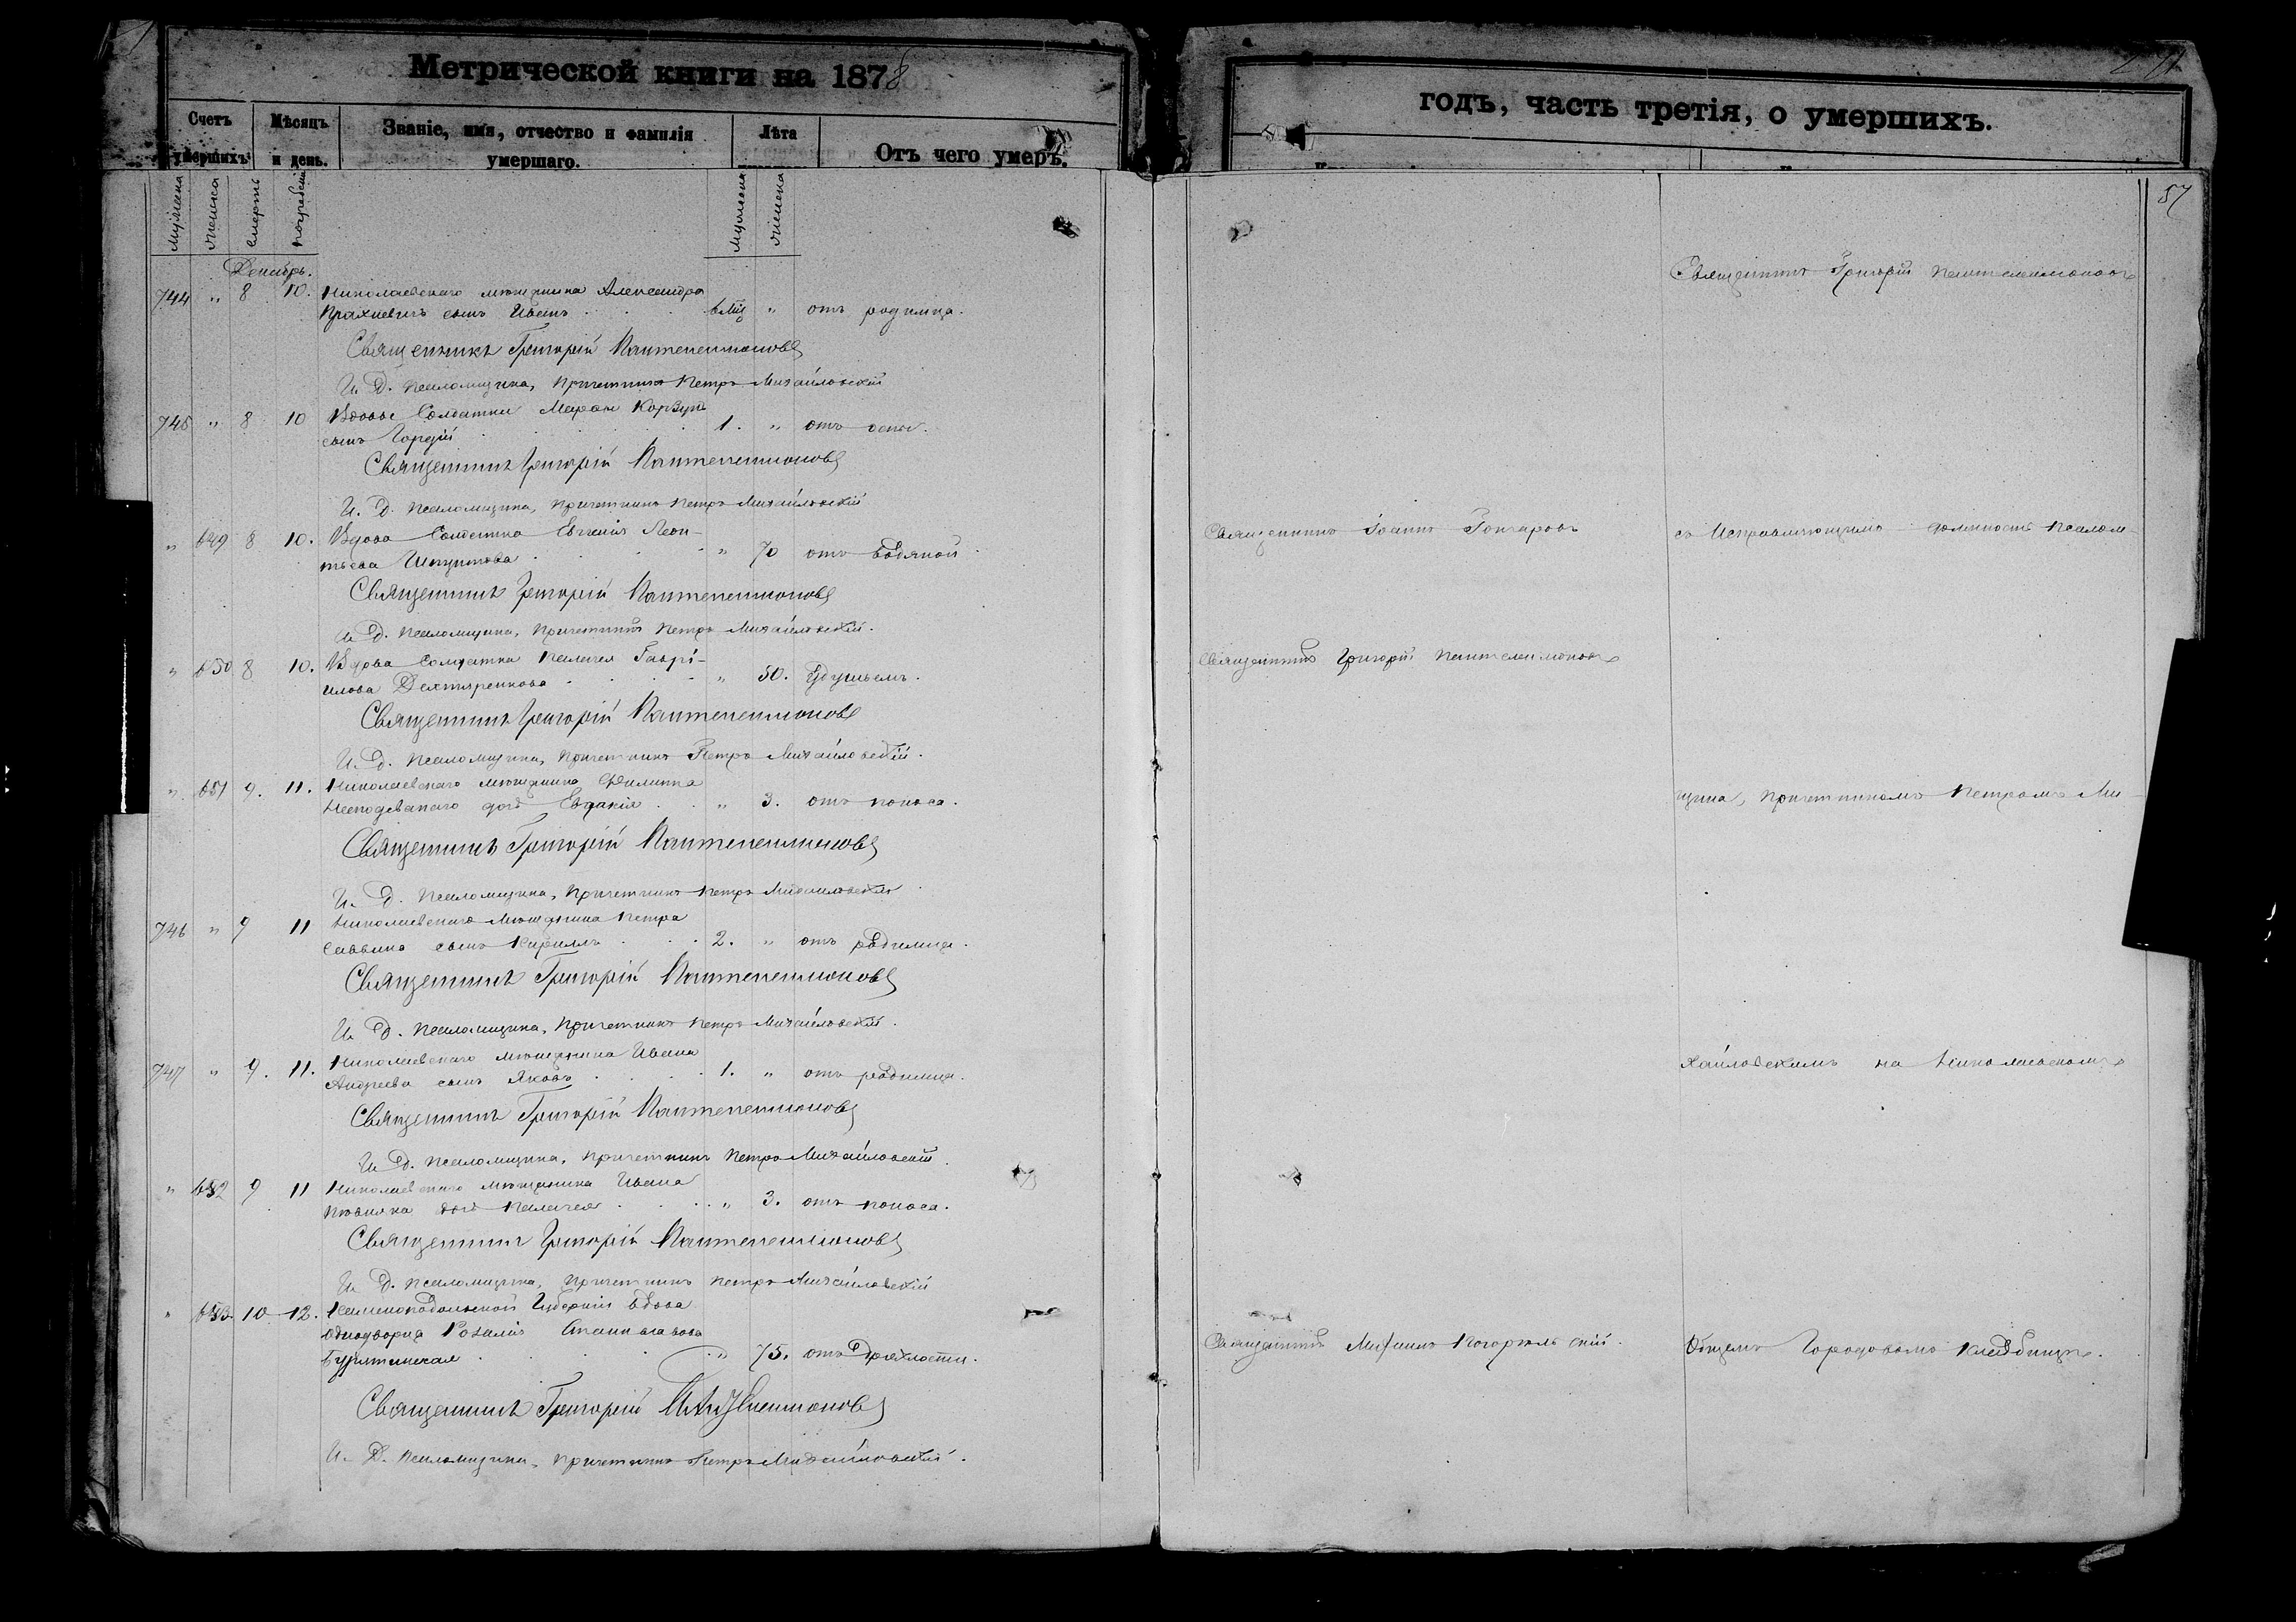 Метрической книги на 1878
годъ, часть третія, о умершихъ.
Счетъ умершихъ
Мѣсяцъ и день.
Званіе, имя, отчество и фамилія умершаго.
Лѣта
Отъ чего умеръ.
57
мужеска
женска
смерть
погребенія
мужеска
женска
Декабрь.
744 " 8 10. Николаевскаго мѣщанина Александра
сынъ Иванъ 6 мц " отъ родимца.
Священникъ Григорій Пантелеимоновъ
И. Д. Псаломщика, Причетникъ Петръ Михайловскій
745 " 8 10 Вдовы Солдатки Марѳы Корзунъ
сынъ Гордій 1. " отъ оспы.
Священникъ Григорій Пантелеимоновъ
И. Д. Псаломщика, Причетникъ Петръ Михайловскій
" 649 8 10. Вдова Солдатка Евгенія Леон-
тьева " 70 отъ водяной.
Священникъ Григорій Пантелеимоновъ
И. Д. Псаломщика, Причетникъ Петръ Михайловскій.
" 650 8 10. Вдова Солдатка Пелагея Гаврі-
илова Дехтяренкова " 50. Удушьемъ.
Священникъ Григорій Пантелеимоновъ
И. Д. Псаломщика, Причетникъ Петръ Михайловскій.
" 651 9. 11. Николаевскаго мѣщанина Филиппа
дочь Евдокія " 3. отъ поноса.
Священникъ Григорій Пантелеимоновъ
И. Д. Псаломщика, Причетникъ Петръ Михайловскій
746 " 9 11 Николаевскаго Мѣщанина Петра
Саввина сынъ Кириллъ 2. " отъ родимца.
Священникъ Григорій Пантелеимоновъ
И. Д. Псаломщика, Причетникъ Петръ Михайловскій.
747 " 9. 11. Николаевскаго мѣщанина Ивана
Андреева сынъ Яковъ 1. " отъ родимца.
Священникъ Григорій Пантелеимоновъ
И. Д. Псаломщика, Причетникъ Петръ Михайловскій.
" 652 9 11 Николаевскаго мѣщанина Ивана
дочь Пелагея " 3. отъ поноса.
Священникъ Григорій Пантелеимоновъ
И. Д. Псаломщика, Причетникъ Петръ Михайловскій
" 653. 10 12. Каменоподольской Губерніи вдова
однодворца Розалія Станиславова
" 75. отъ Дряхлости.
Священникъ Григорій Пантелеимоновъ
И. Д. Псаломщика, Причетникъ Петръ Михайловскій.
Священникъ Григорій Пантелеимоновъ
Священникъ Іоаннъ Гончаровъ
съ Исправляющимъ должность Псалом-
Священникъ Григорій Пантелеимоновъ
щика, Причетникомъ Петромъ Ми-
хайловскимъ на Николаевскомъ
Священникъ Михаилъ Погорѣльскій.
Общемъ Городовомъ Кладбищѣ.